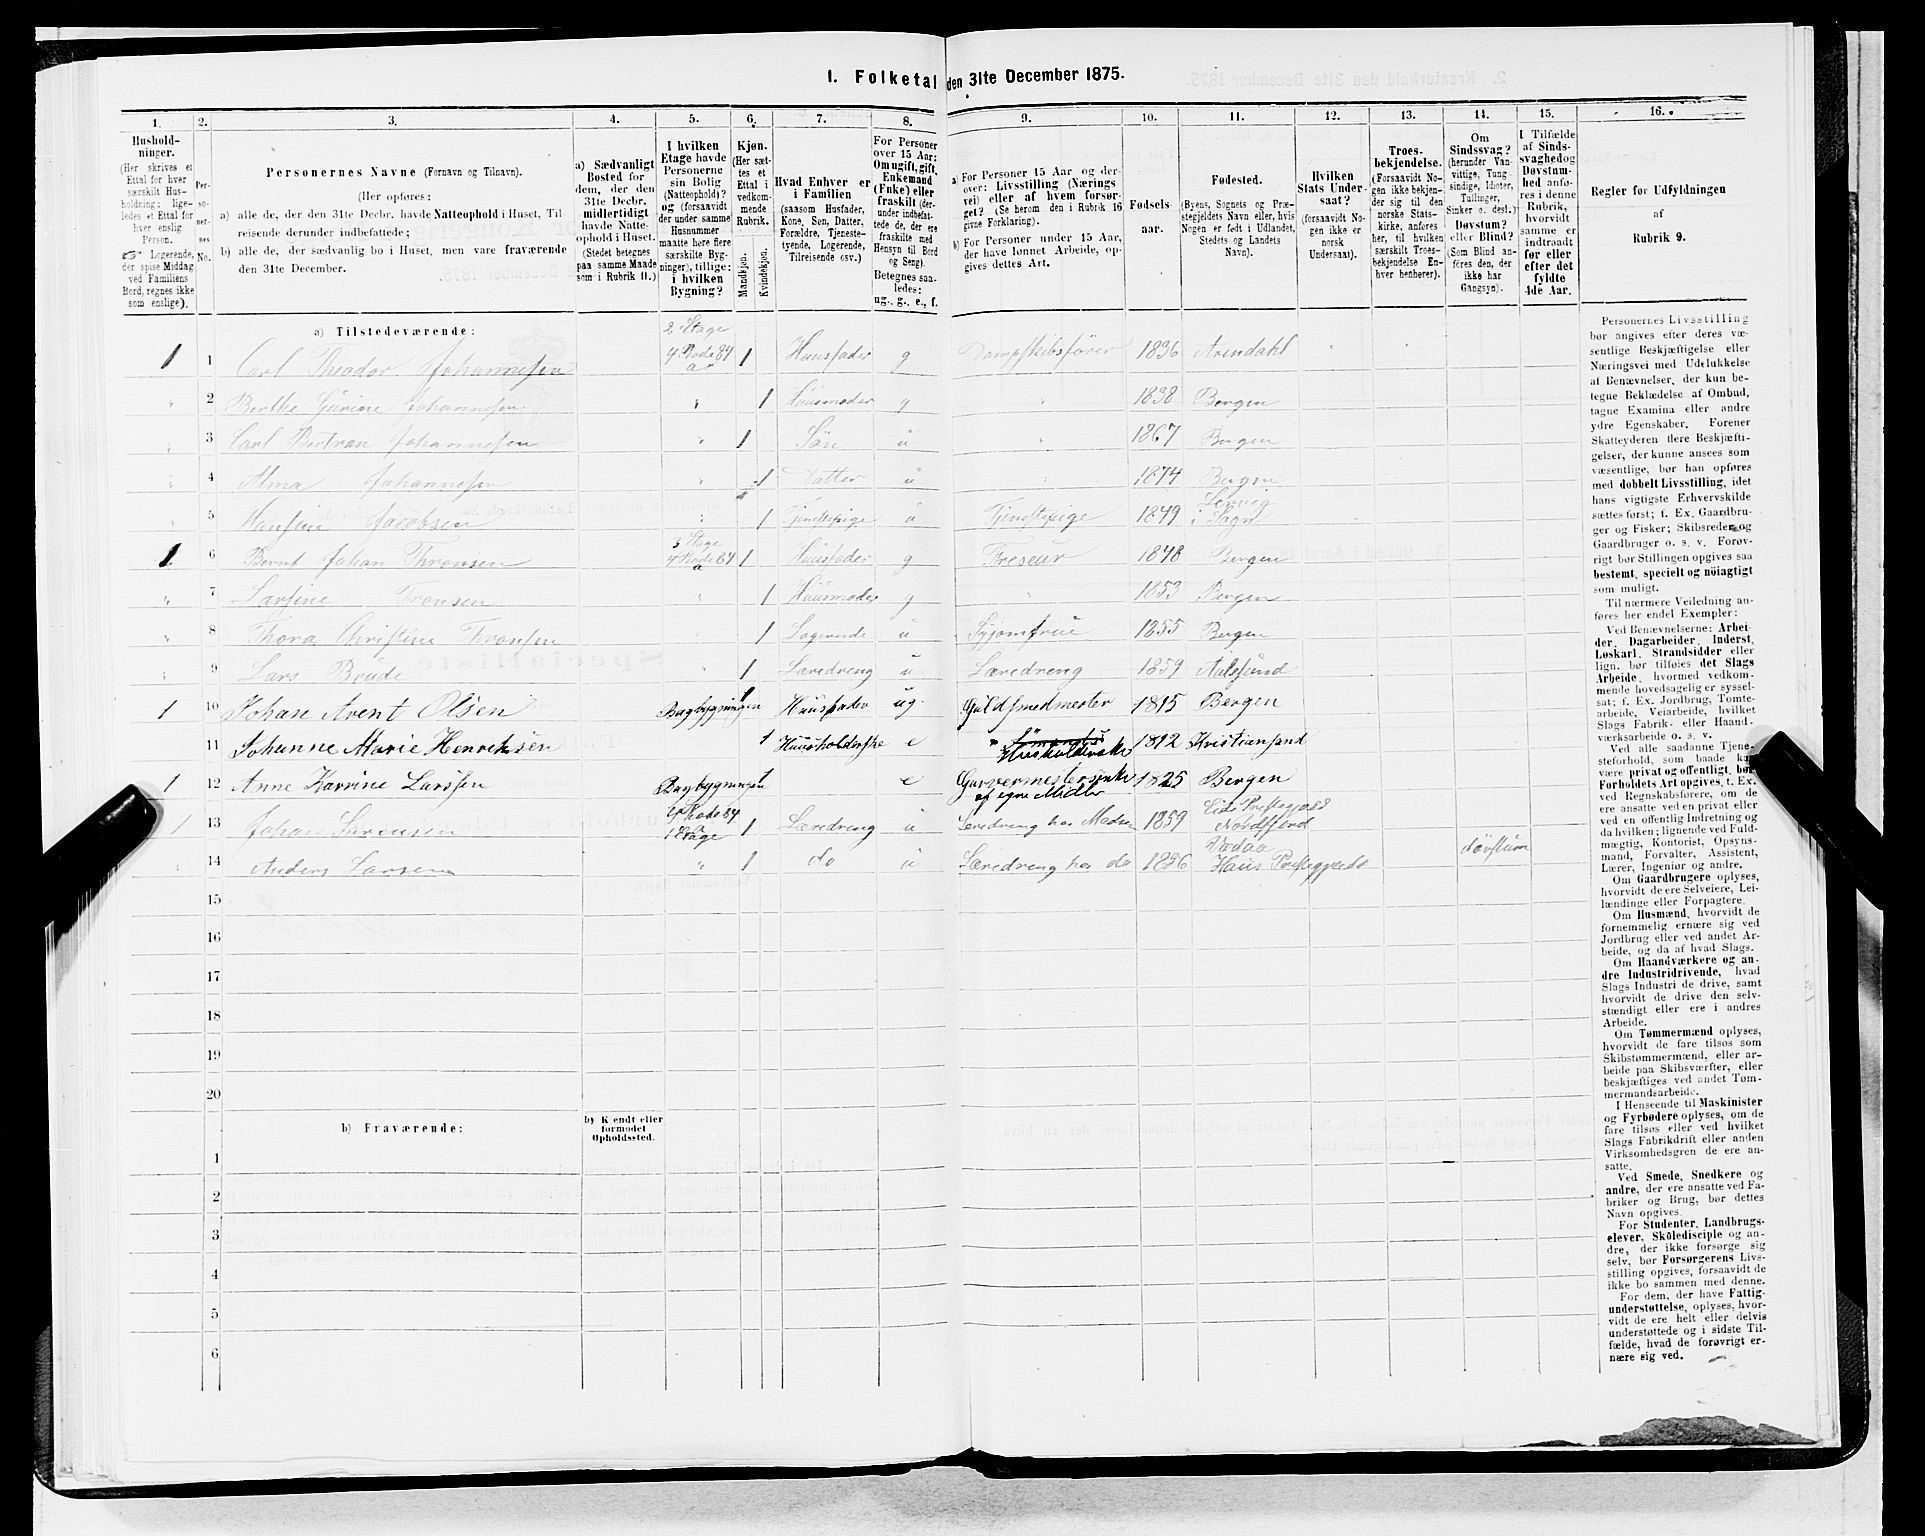 1. Folketal den 31te December 1875.
1. 2. 3. 4. 5. 6. 7. 8. 9. 10. 11. 12. 13. 14. 15. 16.
Hushold-
ninger.
(Her skrives et
Ettal for hver
særskilt Hus-
holdning; lige-
ledes et Ettal for
hver enslig
Person.
Logerende,
der spise Middag
ved Familiens
Bord, regnes ikke
som enslige).
Per-
so-
ner-
nes
No.
Personernes Navne (Fornavn og Tilnavn).
(Her opføres:
a) alle de, der den 31te Decbr. havde Natteophold i Huset, Til-
reisende derunder indbefattede;
b) alle de, der sædvanlig bo i Huset, men vare fraværende
den 31te December.
a) Sædvanligt
Bosted for
dem, der den
31te Decbr.
midlertidigt
havde Natte-
ophold i Huset.
(Stedet betegnes
paa samme Maade
som i Rubrik 11.)
I hvilken
Etage havde
Personerne
sin Bolig
(Natteophold)?
og (forsaavidt
der under samme
Husnummer
maatte høre flere
særskilte Byg-
ninger), tillige:
i hvilken
Bygning?
Kjøn.
(Her sæt-
tes et
Ettal i
vedkom-
mende
Rubrik.
Mandkjøn.
Kvindekjøn.
Hvad Enhver er
i Familien
(saasom Husfader,
Kone, Søn, Datter,
Forældre, Tjeneste-
tyende, Logerende,
Tilreisende osv.)
For Personer
over 15 Aar:
Om ugift, gift,
Enkemand
(Enke) eller
fraskilt (der-
under indbefat-
tede de, der ere
fraskilte med
Hensyn til Bord
og Seng).
Betegnes saa-
ledes:
ug., g., e., f.
a) For Personer 15 Aar og der-
over: Livsstilling (Nærings
vei) eller af hvem forsør-
get? (Se herom den i Rubrik 16
givne Forklaring).
b) For Personer under 15 Aar,
der have lønnet Arbeide, op-
gives dettes Art.
Fødsels-
aar.
Fødested.
(Byens, Sognets og Præ-
stegjeldets Navn eller, hvis
Nogen er født i Udlandet,
Stedets og Landets
Navn).
Hvilken
Stats Under-
saat?
(forsaavidt No-
gen ikke er
norsk
Undersaat).
Troes-
bekjendelse.
(Forsaavidt No-
gen ikke bekjen-
der sig til den
norske Stats-
kirke, anføres
her, til hvilken
særskilt Troes-
bekjendelse En-
hver henhører).
Om
Sindssvag?
(herunder Van-
vittige, Tung-
sindige, Idioter,
Tullinger,
Sinker o. desl.)
Døvstum?
eller Blind?
(Som Blind an-
føres den, der
ikke har
Gangsyn).
I Tilfælde
af Sinds-
svaghed og
Døvstum-
hed anfø-
res i denne
Rubrik,
hvorvidt
samme er
indtraadt
før eller
efter det
fyldte
4de Aar.
Regler før Udfyldningen
af
Rubrik 9.
a) Tilstedeværende:
1 1 Carl Theador Johannesen 2 Etage 4 Rode 84 a 1 Huusfader g Dampskibsförer 1836 Arendahl
" 2 Berthe Gurine Johannesen " 1 Huusmoder g " 1838 Bergen
" 3 Carl Bertran Johannesen " 1 Sön u " 1867 Bergen
" 4 Alma Johannesen " 1 Datter u " 1874 Bergen
" 5 Hansine Jacobsen " 1 Tjenstepige u Tjenstepige 1849 i Sogn
1 6 Bernt Johan Thronsen 3 Etage 4 Rode 84 a 1 Huusfader g Freseur 1848 Bergen
" 7 Larsine Tronsen " 1 Huusmoder g " 1853 Bergen
" 8 Thora Christine Thronsen " 1 Logerende u Syjomfrue 1855 Bergen
" 9 Lars Brude " 1 Læredreng u Læredreng 1859 Aalesund
1 10 Johan Arent Olsen Bagbygningen 1 Huusfader ug. Guldsmedmester 1815 Bergen
11 Johanne Marie Henriksen 1 Huusholderske e " Huusholderske 1812 Kristiansand
1 12 Anne Karrine Larssen Bagbygningen 1 e Garvermestersenke af egne Midler 1825 Bergen
1 13 Johan Sörensen 4 Rode 84 a 1 Etage 1 Læredreng u Læredreng hos 1859 Eids Prestegjeld Nordfjord
" 14 Anders Larsen " 1 do u Læredreng hos do 1856 Haus Prestegjeld dövstum
15
16
17
18
19
20
b) Fraværende:
b) Kjendt eller
formodet
Opholdssted.
1
2
3
4
5
6
Personernes Livsstilling
bør angives efter deres væ-
sentlige Beskjæftigelse eller
Næringsvei med Udelukkelse
af Benævnelser, der kun be-
tegne Beklædelse af Ombud,
tagne Examina eller andre
ydre Egenskaber. Forener
Skatteyderen flere Beskjæfti-
gelser, der kunne ansees som
væsentlige, bør han opføres
med dobbelt Livsstilling, idet
hans vigtigste Erhvervskilde
sættes først; f. Ex. Gaardbru-
ger og Fisker; Skibsreder og
Gaardbruger o. s. v. Forøv-
rigt bør Stillingen opgives saa
bestemt, specielt og nöiagtigt
som muligt.
Til nærmere Veiledning an-
føres her endel Exempler:
Ved Benævnelserne: Arbei-
der, Dagarbeider, Inderst,
Løskarl, Strandsidder eller
lign. bør tilføies det Slags
Arbeide, hvormed vedkom-
mende hovedsagelig er syssel-
sat; f. Ex. Jordbrug, Tomte-
arbeide, Veiarbeide, hvilket
Slags Fabrik- eller Haand-
værksarbeide o. s. v.
Ved alle saadanne Tjene-
steforhold, som baade kan
være privat og offentligt, bør
Forholdets Art opgives, t. Ex.
ved Regnskabsførere, om de
ere ansatte ved en privat eller
ved en offentlig Indretning og
da hvilken; lignende ved Fuld-
mægtig, Kontorist, Opsyns-
mand, Forvalter, Assistent,
Lærer, Ingeniør og andre.
Om Gaardbrugere oplyses,
hvorvidt de ere Selveiere, Lei-
lændinge eller Forpagtere.
Om Husmænd, hvorvidt de
fornemmelig ernære sig ved
Jordbrug eller ved andet Ar-
beide, og da af hvad Slags.
Om Haandværkere og an-
dre Industridrivende, hvad
Slags Industri de drive, samt
hvorvidt de drive den selv-
stændigt eller ere i andres
Arbeide.
Om Tømmermænd oplyses,
hvorvidt de fare tilsøs som
Skibstømmermænd, eller ar-
beide paa Skibsværfter, eller
beskjæftiges ved andet Tøm-
mermandsarbeide.
I Henseende til Maskinister
og Fyrbødere oplyses, om de
fare tilsøs eller ved hvilket
Slags Fabrikdrift eller anden
Virksomhedsgren de ere an-
satte.
Ved Smede, Snedkere og
andre, der ere ansatte ved Fa-
briker og Brug, bør dettes
Navn opgives.
For Studenter, Landbrugs-
elever, Skoledisciple og an-
dre, der ikke forsørge sig
selv, bør Forsørgerens Livs-
stilling opgives, forsaavidt de
ikke bo sammen med denne.
For dem, der have Fattig-
understøttelse, oplyses, hvor-
vidt de ere helt eller delvis
understøttede og i sidste Til-
fælde, hvad de forøvrigt er-
nære sig ved.